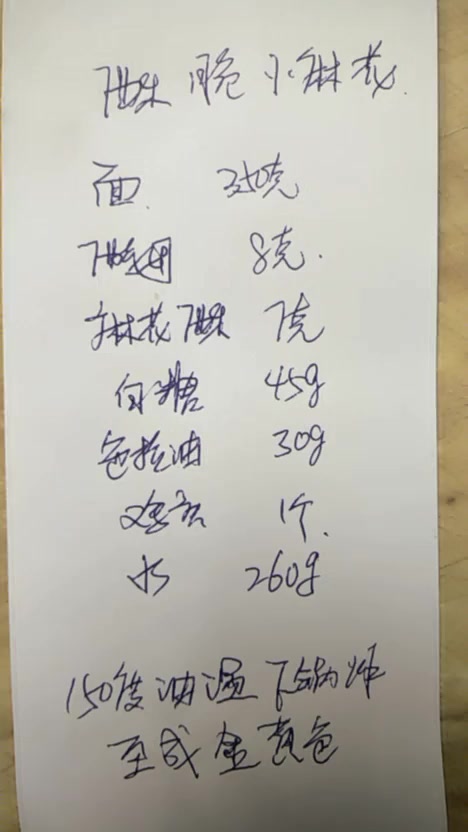 酥脆小麻花
面 350克
酵母 8克.
麻花酥 7克
白糖 45g
色拉油 30g
鸡蛋 1个.
水 260g
150度油温下锅炸
至成金黄色